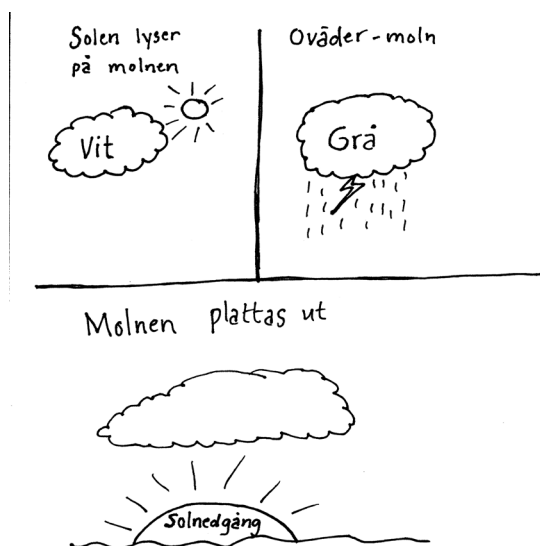 Solen lyser
på molnen
Vit
Oväder-moln
Grå
Molnen plattas ut
Solnedgång